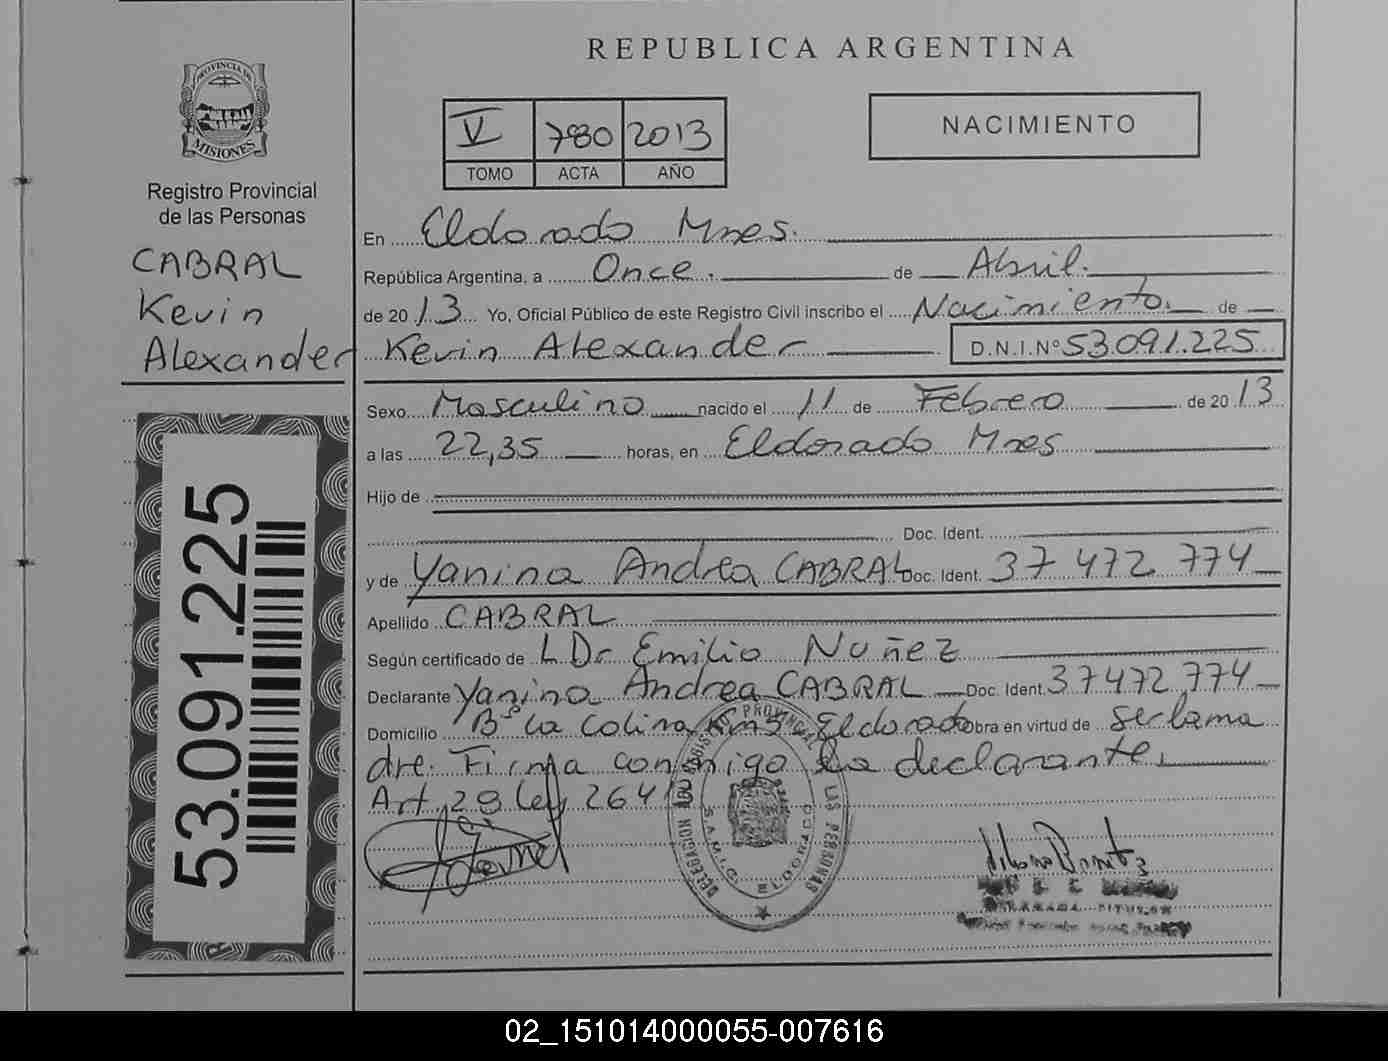 REPUBLICA ARGENTINA
PROVINCIA DE
MISIONES
Registro Provincial
de las Personas
CABRAL
Kevin
Alexander
V 780 2013
TOMO ACTA AÑO
NACIMIENTO
En Eldorado Mnes.
República Argentina, a Once. de Abril.
de 2013 Yo, Oficial Público de este Registro Civil inscribo el Nacimiento. de
Kevin Alexander D.N.I.Nº 53.091.225
Sexo Masculino nacido el 11 de Febrero de 2013
a las 22,35 horas, en Eldorado Mnes
Hijo de
Doc. Ident.
y de Yanina Andrea CABRAL Doc. Ident. 37 472 774
Apellido CABRAL
Según certificado de LDr Emilio Nuñez
Declarante Yanina Andrea CABRAL Doc. Ident. 37472.774
Domicilio Bº La Colina Km 3 Eldorado Obra en virtud de ser lama
dre. Firma conmigo la declarante.
Art. 29 Ley 26413
53.091.225
REGISTRO PROVINCIAL DE LAS PERSONAS
DELEGACION
S.A.M.I.C. ELDORADO
02_151014000055-007616